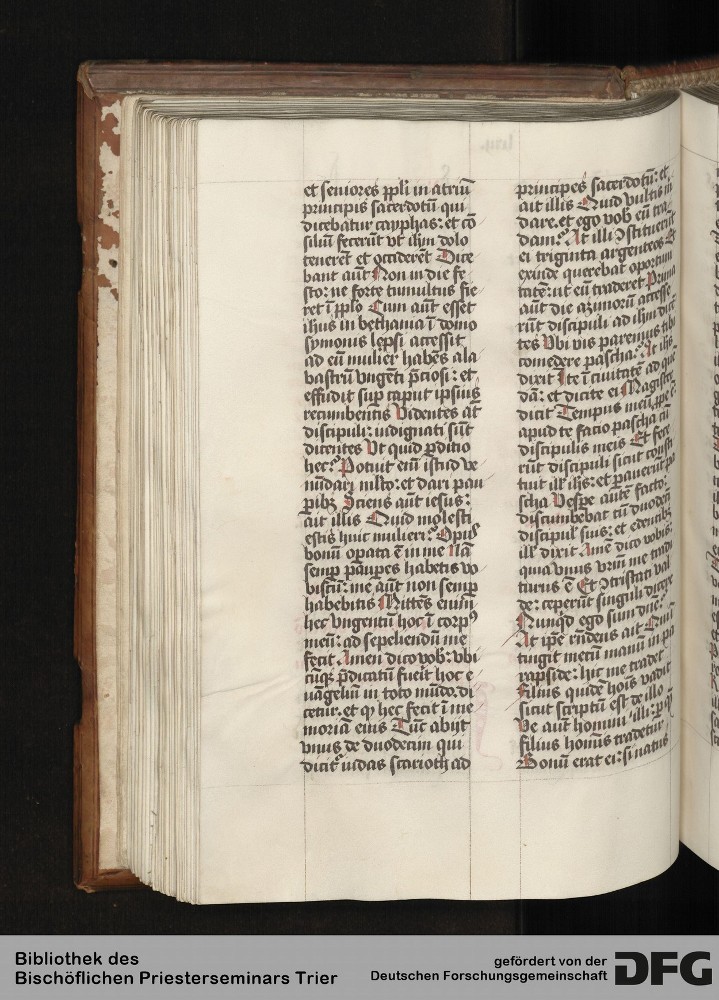 et seniores ppli in atriū
principis sacerdotū qui
dicebatur cayphas: et cō
siliū fecerūt vt ihm dolo
tenerēt et occiderēt Dice
bant aūt Non in die fe
sto: ne forte tumultus fie
ret ī pplo Cum aūt esset
ihus in bethania ī domo
symonis lepsi accessit
ad eū mulier habēs ala
bastrū vngēti pciosi: et
effudit sup caput ipsius
recumbentis Videntes āt
discipuli: indignati sūt
dicentes Vt quid pditio
hec? Potuit em istud ve
nūdari mlto: et dari pau
pibz Sciens aūt iesus:
ait illis Quid molesti
estis huic mulieri? Opus
bonū opata ē in me Nā
semp paupes habetis vo
biscū: me aūt non semp
habebitis Mittēs enim
hec vngentū hoc ī corpꝰ
meū: ad sepeliendū me
fecit Amen dico vob: vbi
cūqꝫ pdicatū fuerit hoc e
uāgeliū in toto mūdo: di
cetur. et qꝫ hec fecit ī me
moriā eius Tūc abijt
vnus de duodecim qui
dicit iudas scarioth ad
principes sacerdotū: et
ait illis Quid vultis m
dare. et ego vob eū tra
dam? At illi ꝯstituerūt
ei triginta argenteos Et
exinde querebat oportuni
tatē: ut eū traderet Prima
aūt die azimorū accesse
rūt discipuli ad ihm dicē
tes Vbi vis paremus tibi
comedere pascha? At ihs
dixit Ite ī ciuitatē ad quē
dā: et dicite ei Magister
dicit Tempus meū ppe ē:
apud te facio pascha cū
discipulis meis Et fece
rūt discipuli sicut consti
tuit ill ihs: et pauerūt pa
scha Vespe autē facto:
discumbebat cū duodecī
discipul suis: et edentibz
ill dixit Amē dico vobis:
quia vnus vrm me tradi
turus ē Et ꝯtristati val
de: ceperūt singuli dicere
Nunqd ego sum dne?
At ipe rndens ait Qui ī
tingit mecū manū in pa
rapside: hic me tradet
Filius quidē hois vadit
sicut scriptū est de illo
Ve aūt homini illi: p qꝫ
filius hominis tradetur
Bonū erat ei: si natus
Bibliothek des
Bischöflichen Priesterseminars Trier
gefördert von der
Deutschen Forschungsgemeinschaft
DFG